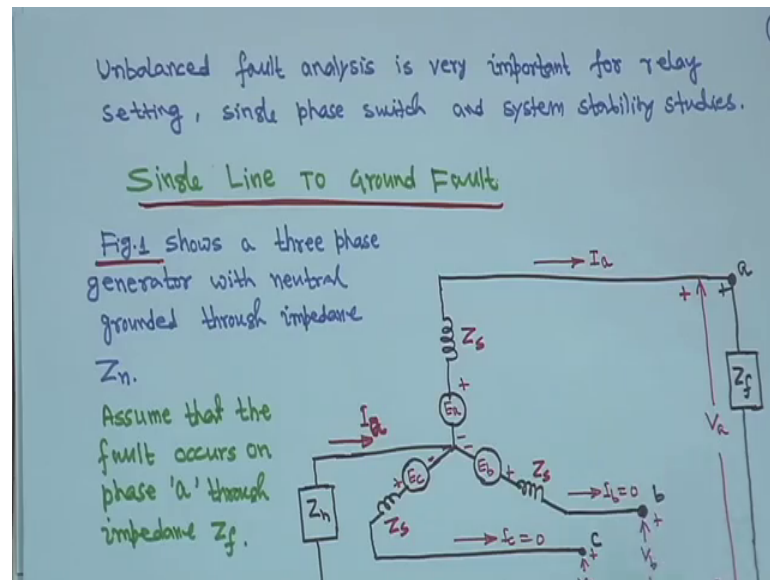 Unbalanced fault analysis is very important for relay
setting, single phase switch and system stability studies.
Single Line To Ground Fault
Fig.1 shows a three phase
generator with neutral
grounded through impedane
Zn.
Assume that the
fault occurs on
phase 'a' through
impedane Zf.
Ia
a
+ +
Zs
Zf
+
Ea
Va
Ia
-
- -
+ Ec
Eb +
Zs
Zn
Zs
Ib=0 b
+
Ic=0 c
+
Vb